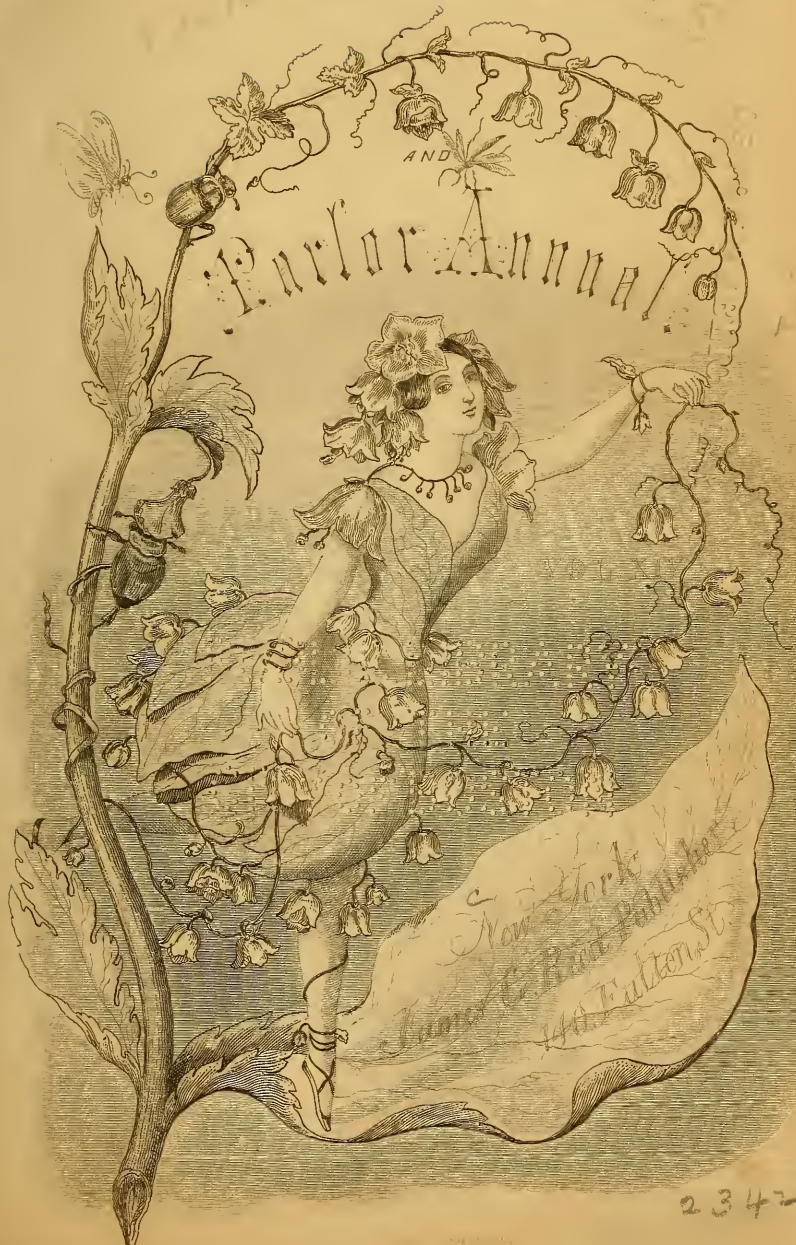 AND
Parlor Annual.
VOL. VI
New York
James G. Reed Publisher
140. Fulton St
2342